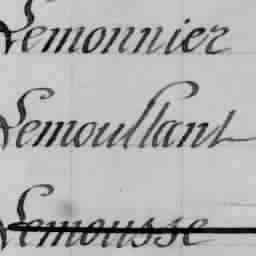 Lemonnier
Lemoullant
Lemousse